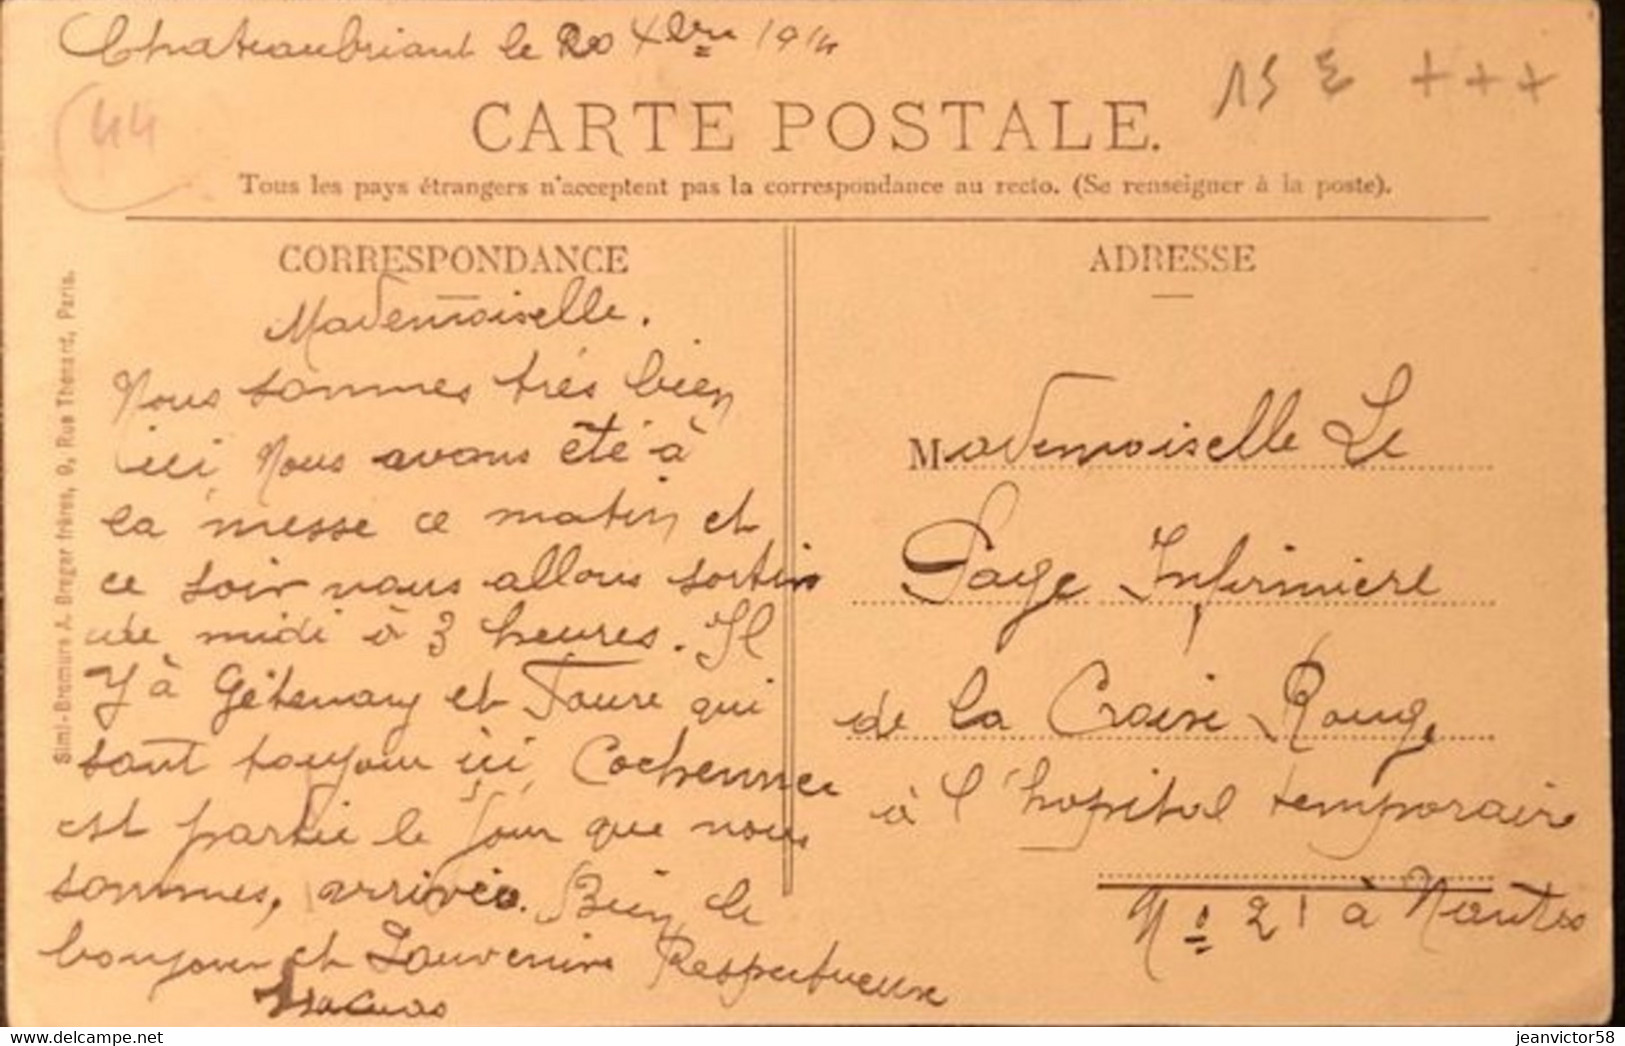 Chateaubriant le 20 Xbre 1914
15 E + + +
44
CARTE POSTALE.
Tous les pays étrangers n'acceptent pas la correspondance au recto. (Se renseigner à la poste).
CORRESPONDANCE
Mademoiselle.
Nous sommes très bien
ici Nous avons été à
la messe ce matin et
ce soir nous allons sortir
de midi à 3 heures. Il
Y à Gétenay et Faure qui
sont toujour ici Cochennec
est partie le jour que nous
sommes, arrivés. Bien le
bonjour et Souvenirs Respectueux
ADRESSE
Mademoiselle Le
Page Infirmière
de la Croix Rouge
à l'hopital temporaire
No 21 à Nantes
Simi-Bromure A. Breger frères, 9, Rue Thénard, Paris.
https://www.delcampe.net
jeanvictor58